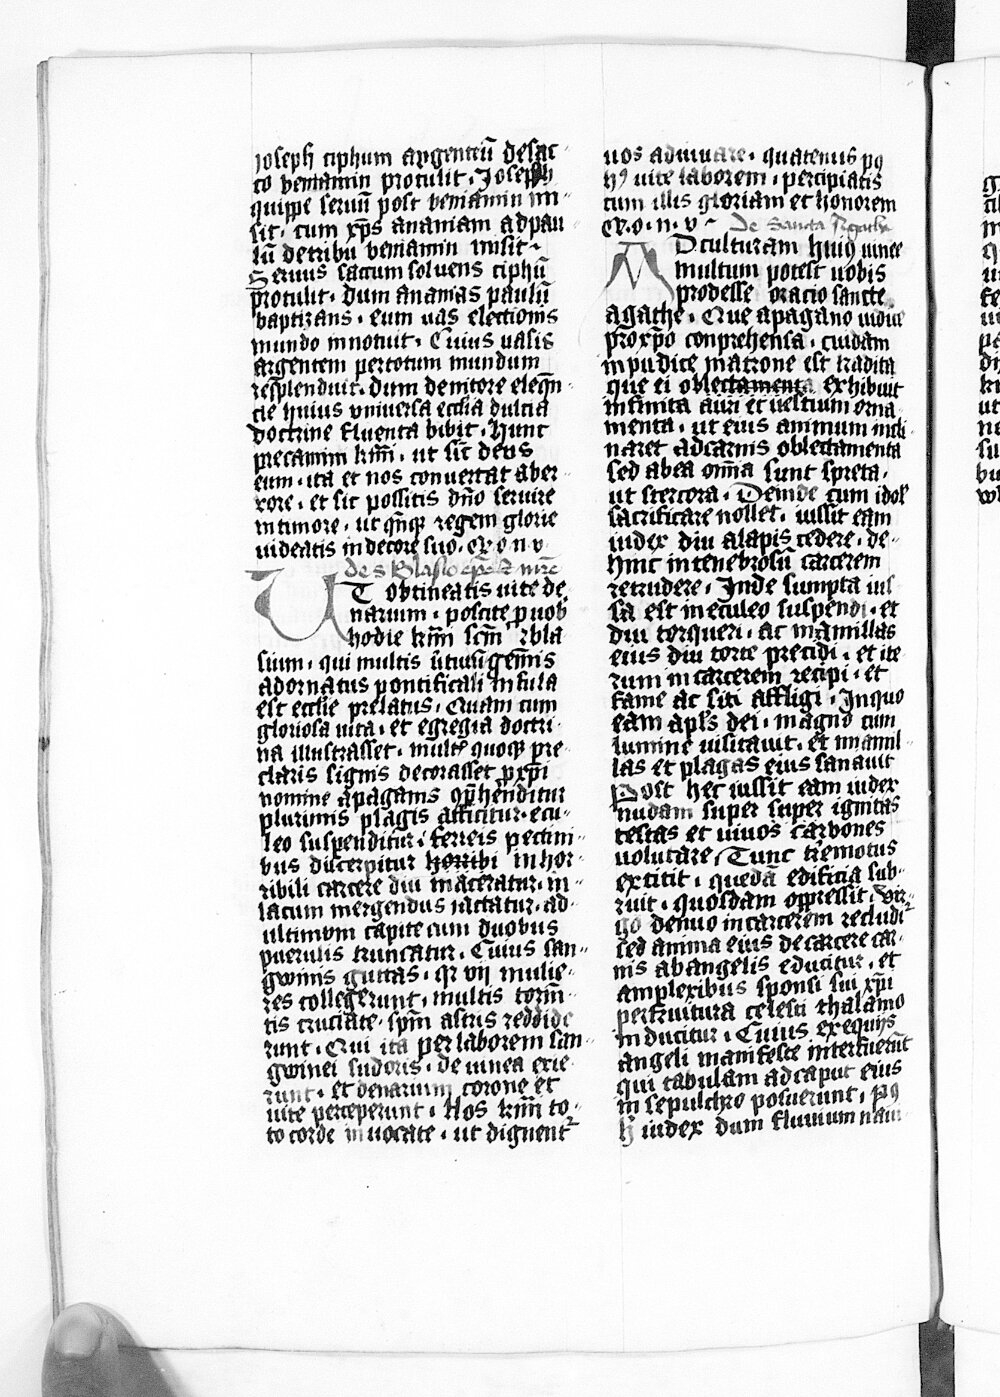 Joseph ciphum argenteū de sac-
co beniamin protulit. Joseph
quippe seruū post beniamin mi-
sit. cum xp̄s ananiam ad pau-
lū de tribu beniamin misit.
Seruus saccum soluens ciphū
protulit. dum ananias paulū
baptizans. eum uas electionis
mundo innotuit. Cuius uasis
argentem per totum mundum
resplenduit. dum de nitore eleqn-
cie huius vniuersa eccl̄ia dulcia
doctrine fluenta bibit. Hunc
precamini km̄i. ut sic̄ deus
eum. ita et nos conuertat ab er-
rore. et sic possitis dn̄o seruire
in timore. ut qn̄q regem glorie
uideatis in decore suo. Q. o n v
de s Blasio ep̄o et mr̄e
Vt obtineatis uite de
narium. poscite p uob
hodie km̄i scm̄ bla
sium. qui multis ūtutū gem̄is
adornatus pontificali infula
est ecclie prelatus. Quam cum
gloriosa uita. et egregia doctri-
na illustrasset. multꝭ quoqꝫ pre-
claris signis decorasset pro xp̄i
nomine a paganis ꝯprehenditur
plurimis plagis afficitur. ecu-
leo suspenditur. ferreis pectini-
bus discerpitur horribi in hor-
ribili carcere diu maceratur. in
lacum mergendus iactatur. ad
ultimum capite cum duobus
puerulis truncatur. Cuius san-
gwinis guttas. qr vij mulie-
res collegerunt. multis torm̄-
tis cruciate. spm̄ astris reddide
runt. Qui ita per laborem san-
gwinei sudoris. de uinea exie-
runt. et denarium corone et
uite perceperunt. Hos km̄i to-
to corde inuocate. ut dignent
uos adiuuare. quatenus pꝰ
hꝰ uite laborem. percipiatis
cum illis gloriam et honorem
Q. o. n. v. De Sancta Agatha
Ad culturam huiꝰ uinee
multum potest uobis
prodesse oracio sancte
agathe. Que a pagano iudice
pro xp̄o conprehensa. cuidam
inpudice matrone est tradita
que ei oblectamenta exhibuit
infinita auri et uestium orna-
menta. ut eius animum incli-
naret ad carnis oblectamenta
sed ab ea om̄ia sunt spreta.
ut stercora. Deinde cum idol
sacrificare nollet. iussit eam
iudex diu alapis cedere. de-
hinc in tenebrosū carcerem
retrudere. Inde sumpta ius-
sa est in eculeo suspendi. et
diu torqueri. ac mamillas
eius diu torte precidi. et ite
rum in carcerem recipi. et
fame ac siti affligi. In quo
eam apl̄s dei. magno cum
lumine uisitauit. et mamil-
las et plagas eius sanauit
Post hec iussit eam iudex
nudam super super ignitas
testas et uiuos carbones
uolutare. Tunc t̄remotus
extitit. quedā edificia sub-
ruit. quosdam oppressit. Vir-
go denuo in carcerem recludit
sed anima eius de carcere car-
nis ab angelis educitur. et
amplexibus sponsi sui xp̄i
perfruitura celesti thalamo
inducitur. Cuius exequijs
angeli manifeste interfuerūt
qui tabulam ad caput eius
in sepulchro posuerunt. Pꝰ
h̄ iudex dum fluuium naui-